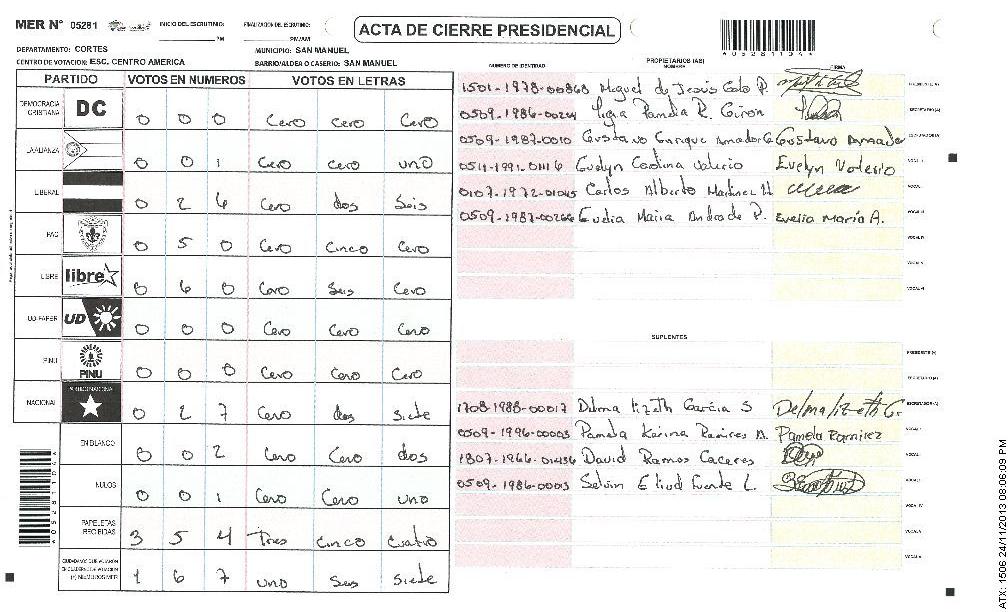 MER N° 05281 INICIO DEL ESCRUTINIO: PM FINALIZACION DEL ESCRUTINIO: PM/AM
ACTA DE CIERRE PRESIDENCIAL
A05281104A
DEPARTAMENTO: CORTES MUNICIPIO: SAN MANUEL
CENTRO DE VOTACION: ESC. CENTRO AMERICA BARRIO/ALDEA O CASERIO: SAN MANUEL
PARTIDO VOTOS EN NUMEROS VOTOS EN LETRAS
DEMOCRACIA CRISTIANA DC 0 0 0 Cero Cero Cero
LA ALIANZA 0 0 1 Cero Cero uno
LIBERAL 0 2 6 Cero dos Seis
PAC 0 5 0 Cero Cinco Cero
LIBRE libre 0 6 0 Cero Seis Cero
UD-FAPER UD 0 0 0 Cero Cero Cero
PINU PINU 0 0 0 Cero Cero Cero
NACIONAL 0 2 7 Cero dos siete
EN BLANCO 0 0 2 Cero Cero dos
NULOS 0 0 1 Cero Cero uno
PAPELETAS RECIBIDAS 3 5 4 Tres cinco cuatro
1 6 7 uno Seis siete
NUMERO DE IDENTIDAD PROPIETARIOS (AS) NOMBRE FIRMA
1501-1978-00868 Miguel de Jesús P. PRESIDENTE (A)
Ligia Pamela R. Giron SECRETARIO (A)
0509-1987-0010 Gustavo Enrique Amador G Gustavo Amador ESCRUTADOR (A)
0511-1991-01116 Evelyn Carolina Valerio Evelyn Valerio
0107-1972-01045 Carlos Alberto Martinez
Maria Andrade P. Evelia María A.
SUPLENTES
PRESIDENTE (A)
SECRETARIO (A)
1708-1988-00017 Delma lizeth García S Delma lizeth G. ESCRUTADOR (A)
0509-1996-00003 Pamela Karina Ramires A. Pamela Ramirez
1807-1966-01436 David Ramos Caceres
0509-1986-0003 Selvin Eliud L.
A05281104A
ATX: 1506 24/11/2013 08:06:09 PM